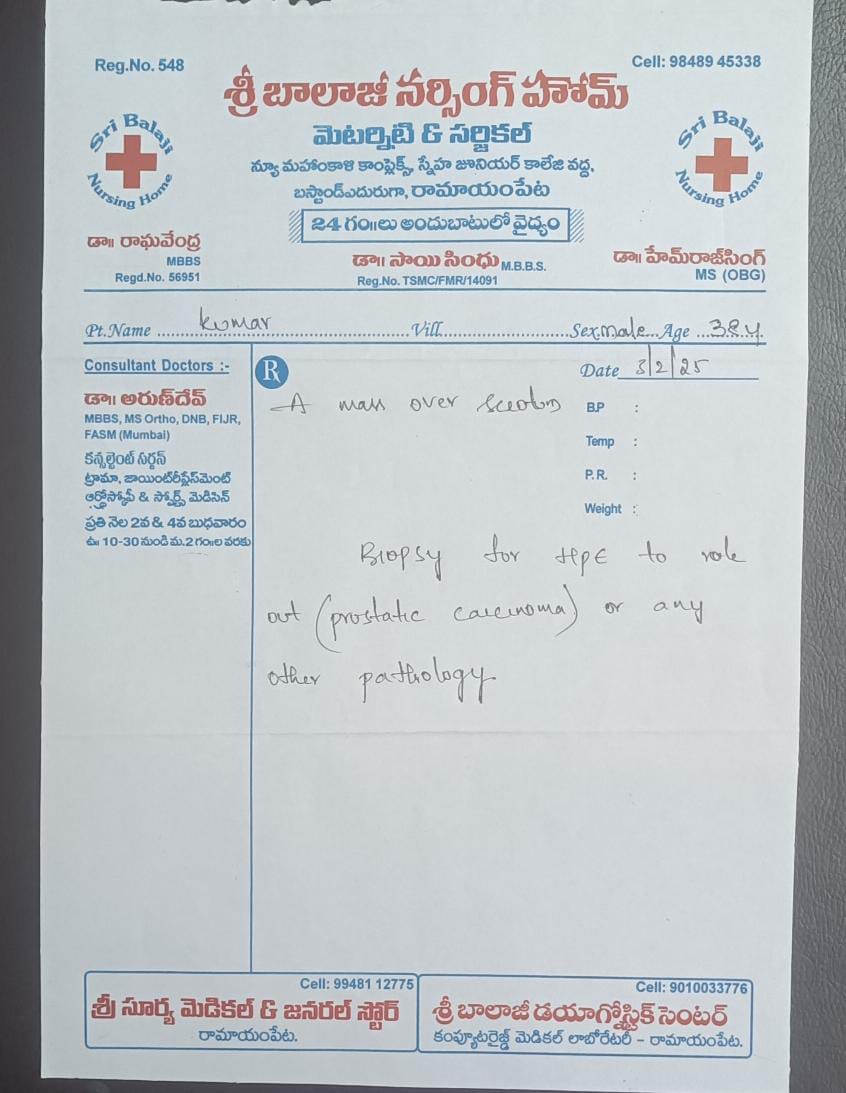 Reg.No. 548
Cell: 98489 45338
శ్రీ బాలాజీ నర్సింగ్ హోమ్
Sri Balaji Nursing Home
Sri Balaji Nursing Home
మెటర్నిటి & సర్జికల్
న్యూ మహాంకాళి కాంప్లెక్స్, స్నేహ జూనియర్ కాలేజి వద్ద,
బస్టాండ్ఎదురుగా, రామాయంపేట
24 గం॥లు అందుబాటులో వైద్యం
డా॥ రాఘవేంద్ర
MBBS
Regd.No. 56951
డా॥ సాయి సింధు M.B.B.S.
Reg.No. TSMC/FMR/14091
డా॥ హేమ్‌రాజ్‌సింగ్
MS (OBG)
Pt.Name kumar Vill Sex male Age 38y
Consultant Doctors :-
డా॥ అరుణ్‌దేవ్
MBBS, MS Ortho, DNB, FIJR,
FASM (Mumbai)
కన్సల్టెంట్ సర్జన్
ట్రామా, జాయింట్‌రీప్లేస్‌మెంట్
ఆర్థ్రోస్కోపీ & స్పోర్ట్స్ మెడిసిన్
ప్రతి నెల 2వ & 4వ బుధవారం
ఉ॥ 10-30 నుండి మ.2 గం॥ల వరకు
Rx
Date 3/2/25
A mass over
B.P :
Temp :
P.R. :
Weight :
Biopsy for HPE to rule
out (prostatic carcinoma) or any
other pathology
Cell: 99481 12775
శ్రీ సూర్య మెడికల్ & జనరల్ స్టోర్
రామాయంపేట.
Cell: 9010033776
శ్రీ బాలాజీ డయాగ్నోస్టిక్ సెంటర్
కంప్యూటరైజ్డ్ మెడికల్ లాబోరేటరీ - రామాయంపేట.